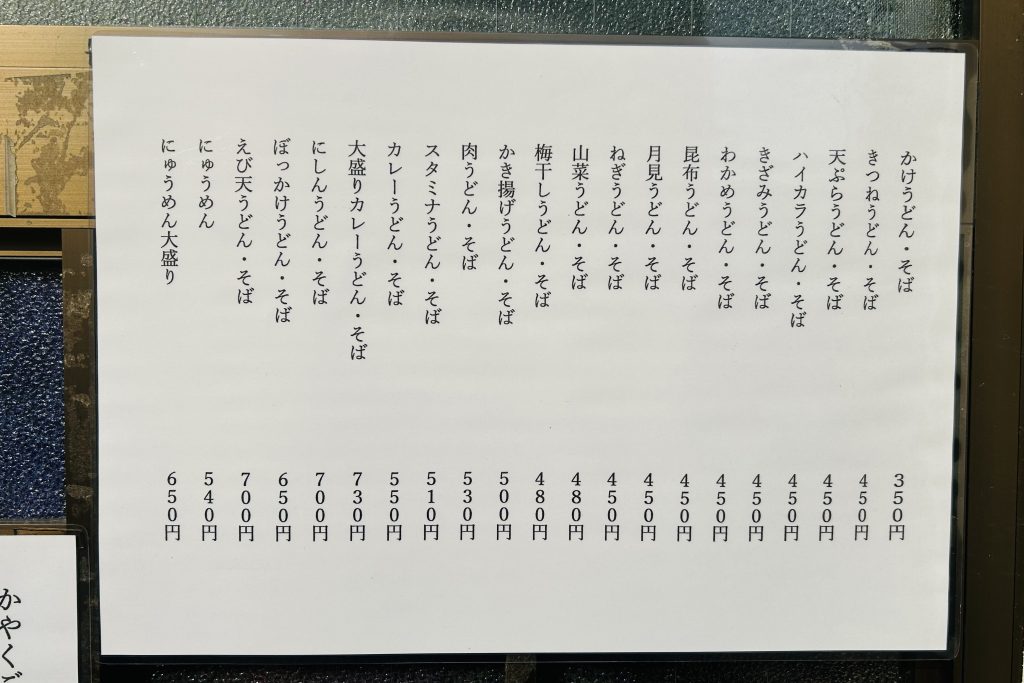 かけうどん・そば 350円
きつねうどん・そば 450円
天ぷらうどん・そば 450円
ハイカラうどん・そば 450円
きざみうどん・そば 450円
わかめうどん・そば 450円
昆布うどん・そば 450円
月見うどん・そば 450円
ねぎうどん・そば 450円
山菜うどん・そば 480円
梅干しうどん・そば 480円
かき揚げうどん・そば 500円
肉うどん・そば 530円
スタミナうどん・そば 510円
カレーうどん・そば 550円
大盛りカレーうどん・そば 730円
にしんうどん・そば 700円
ぼっかけうどん・そば 650円
えび天うどん・そば 700円
にゅうめん 540円
にゅうめん大盛り 650円
かやくご